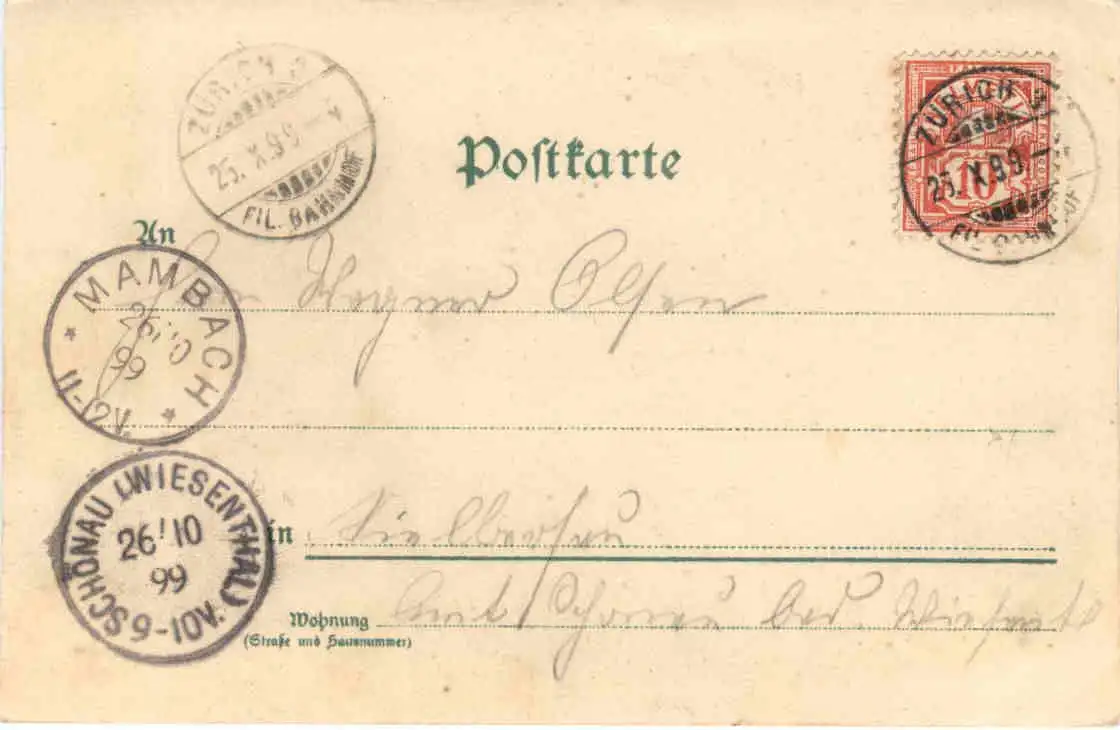 ZÜRICH 3
25. X. 99 – V
FIL. BAHNHOF
Postkarte
10
ZÜRICH 3
25. X. 99
FIL. BAHNHOF
An
MAMBACH
26/10
99
11-12V.
Olsen
SCHÖNAU (WIESENTHAL)
26/10
99
9-10V.
in
Wohnung Amt Schönau
(Straße und Hausnummer)